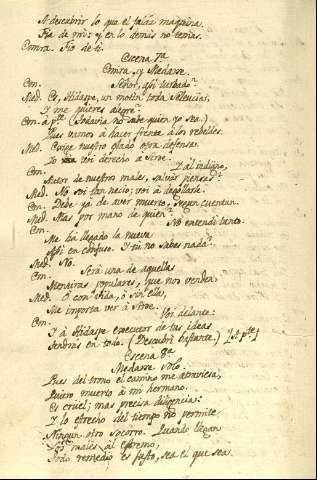 A descubrir lo que el falaz maquina.
Fia de mi: y en lo demas no temas.
Comra. Fio de ti.
Escena 7ª
Comra. y Medarse.
Con. Señor, asi turbado?
Med. Es, Hidaspe, un motin toda Seleucia,
Y me quieres alegre?
Con. à pte. (Todavia no sabe quien yo sea.)
Pues vamos à hacer frente à los rebeldes.
Med. Exige nuestro estado otra defensa.
Yo voi derecho à Siroe.
Con. Y al indigno,
Autor de nuestros males, salvar piensas?
Med. No soi tan necio; voi à degollarle.
Con. Debe yà de aver muerto, segun cuentan.
Med. Mas por mano de quien?
Con. No entendi tanto.
Me ha llegado la nueva
Asi en confuso. Y tu no sabes nada?
Med. No.
Con. Serà una de aquellas
Mentiras populares, que nos venden.
Med. O con vida, ò sin ella,
Me importa ver à Siroe.
Con. Voi delante:
Y à Hidaspe executor de tus ideas
Tendràs en todo. (Descubri bastante.) [à pte]
Escena 8ª
Medarse solo.
Pues del trono el camino me atraviesa,
Quiero muerto à mi hermano.
Es cruel; mas precisa diligencia:
Y lo estrecho del tiempo no permite
Ningun otro socorro. Quando llegan
Los males al estremo,
Todo remedio es justo sea el que sea.